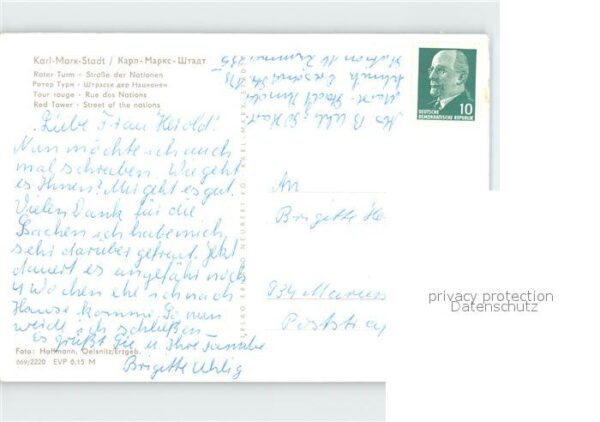 Karl-Marx-Stadt / Карл-Маркс-Штадт
Roter Turm · Straße der Nationen
Ротер Турм · Штрассе дер Национен
Tour rouge · Rue des Nations
Red Tower · Street of the nations
Liebe Frau Herold!
Nun möchte ich auch
mal schreiben. Wie geht
es Ihnen? Mir geht es gut.
Vielen Dank für die
Sachen ich habe mich
sehr darüber gefreut. Jetzt
dauert es ungefähr noch
4 Wochen ehe ich nach
Hause komme. So nun
werde ich schließen
Es grüßt Sie u Ihre Familie
Brigitte Uhlig
Foto: Hoffmann, Oelsnitz/Erzgeb.
669/2220 EVP 0,15 M
10
DEUTSCHE
DEMOKRATISCHE REPUBLIK
An
Brigitte He
934 Marien
Poststr
privacy protection
Datenschutz